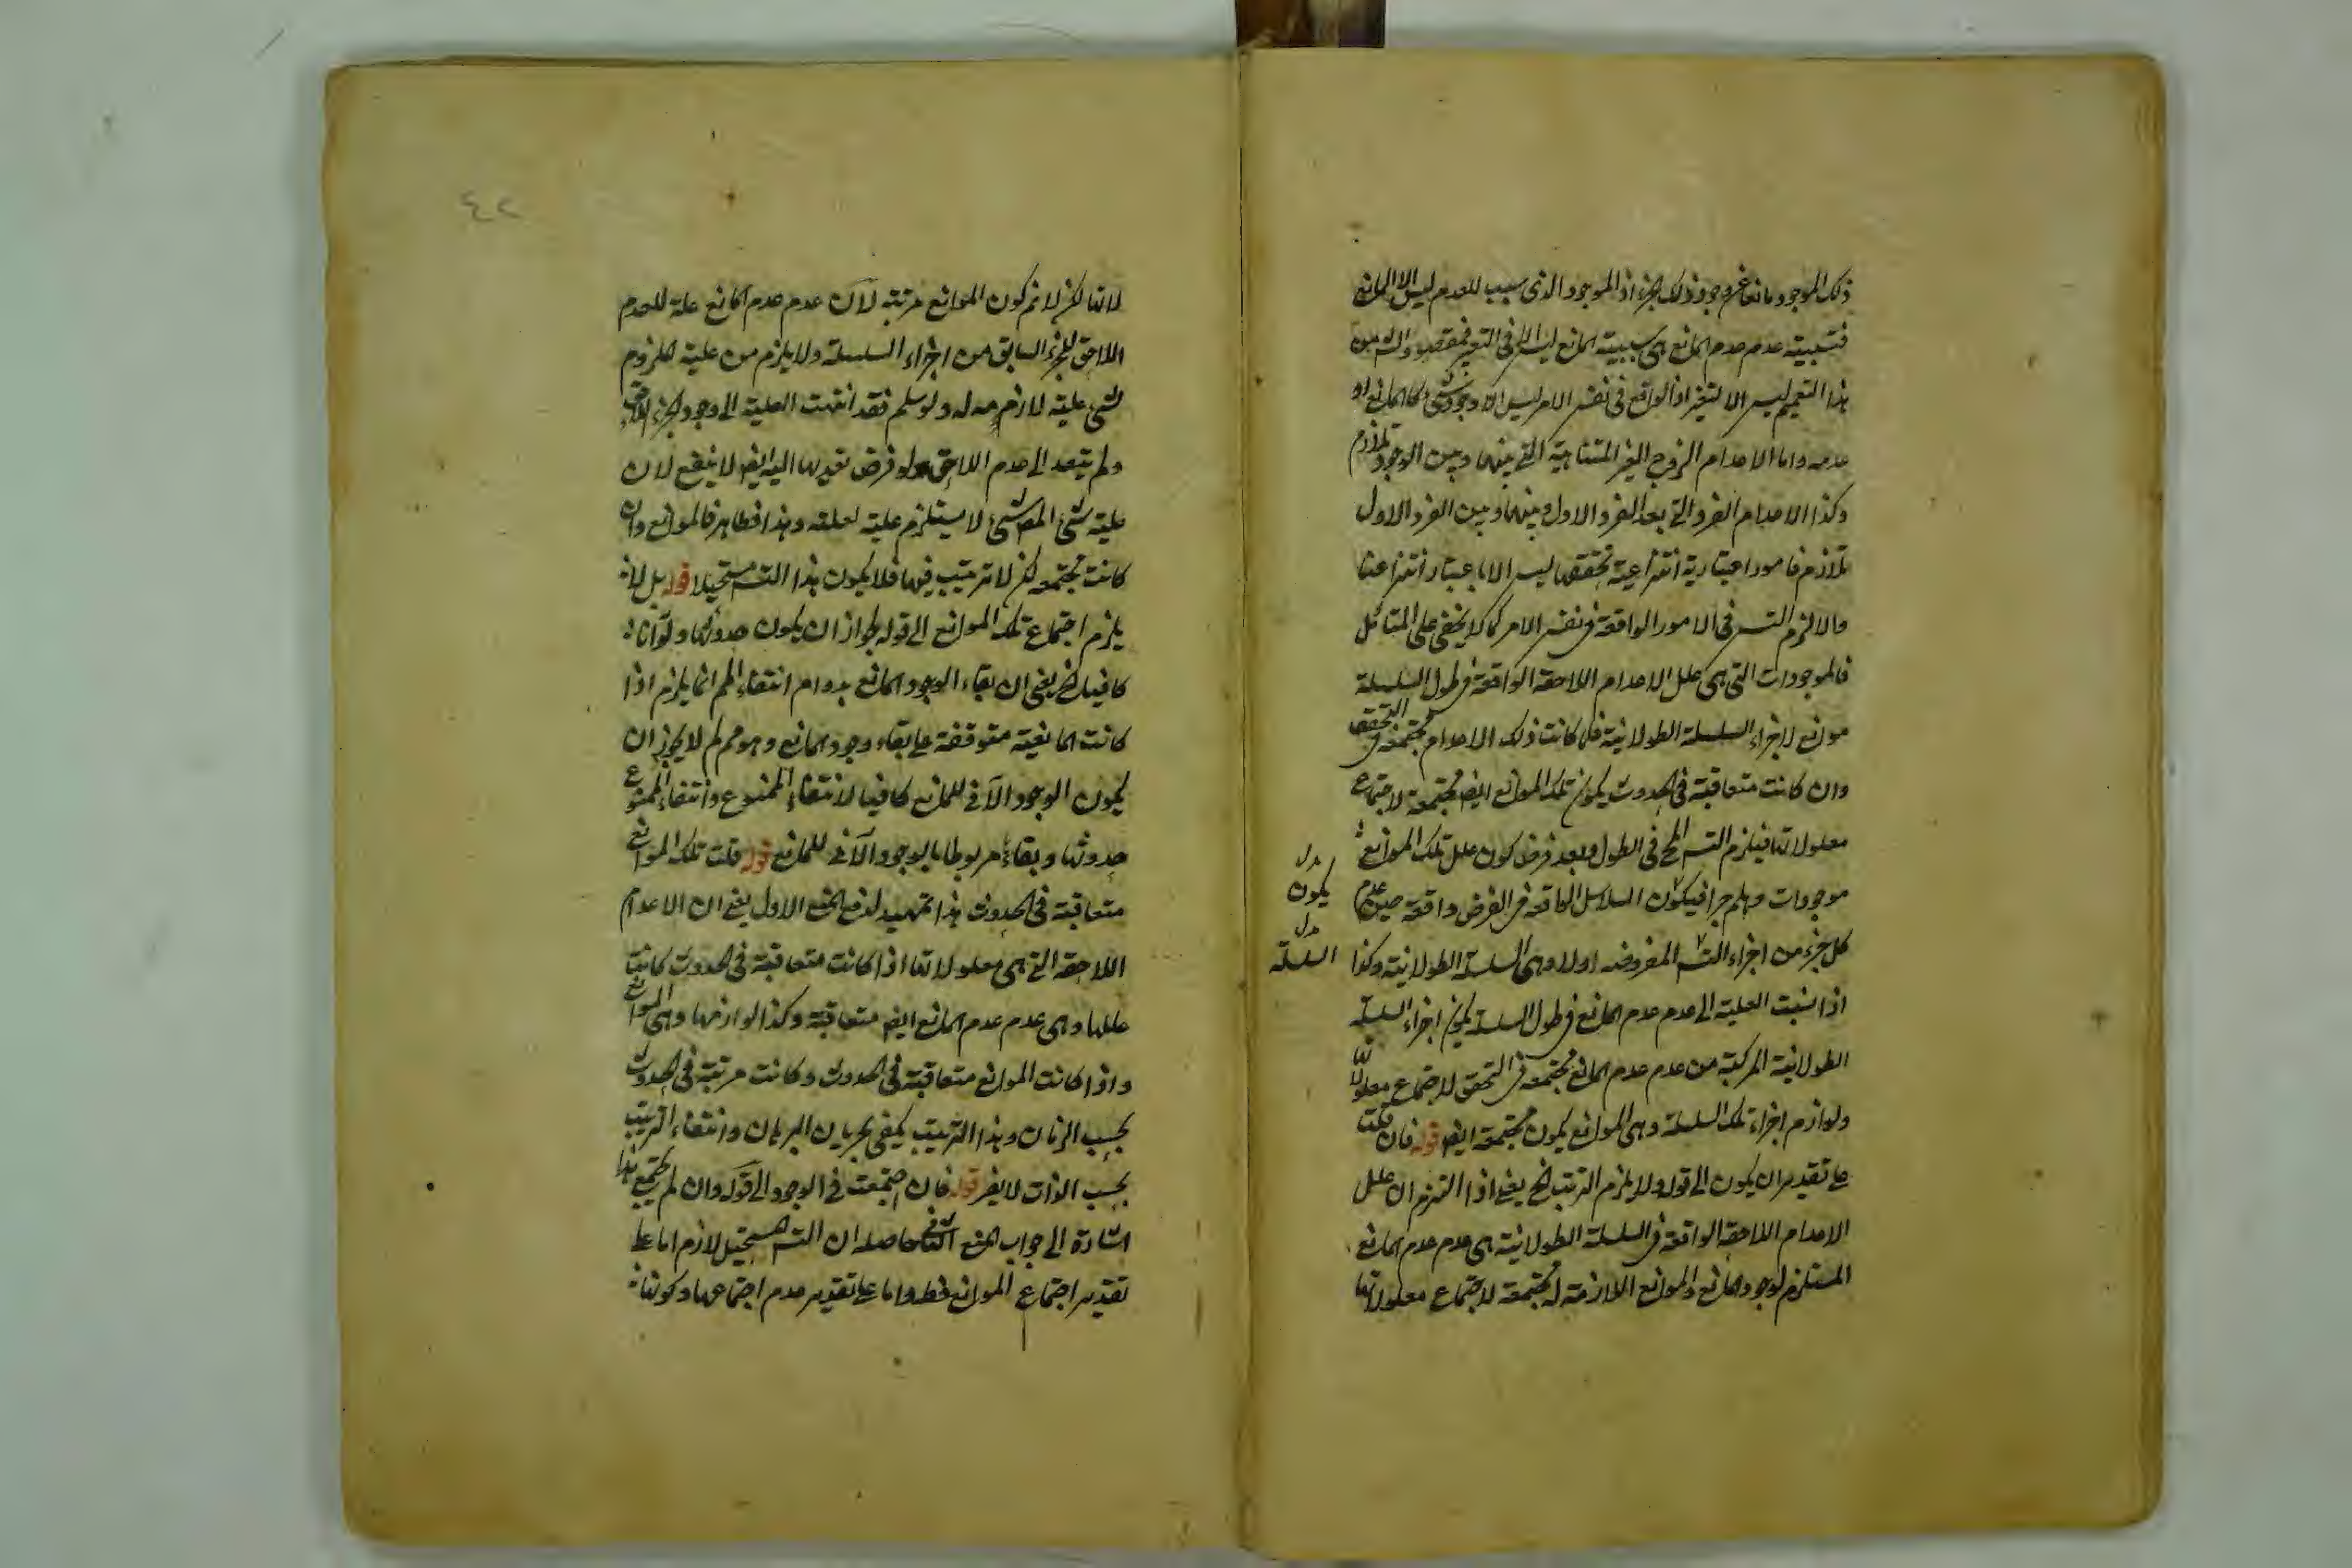 ذلك الموجود مانعا عن وجود ذلك الجزء اذ الموجود الذى سبب للعدم ليس الا المانع
فسببية عدم عدم المانع هى سببية المانع ليس الا فى التعبير
هذا التعميم ليس الا لتغير اذ الواقع فى نفس الامر ليس الا وجود شئ كالمانع او
عدمه واما الاعدام الزوج الغير المتناهية التى بينهما وبين الوجود تلازم
وكذا الاعدام الفرد التى بعد الفرد الاول وبينهما وبين الفرد الاول
تلازم فامور اعتبارية انتزاعية تحققها ليس الا باعتبار انتزاعنا
والا لزم التسـ فى الامور الواقعة فى نفس الامر كما لا يخفى على المتأمل
فالموجودات التى هى علل الاعدام اللاحقة الواقعة فى طول السلسلة
موانع لاجزاء السلسلة الطولانية فلما كانت ذلك الاعدام مجتمعة فى التحقق
وان كانت متعاقبة فى الحدوث يكون تلك الموانع ايضا مجتمعة لاجتماع
معلولاتها فيلزم التسـ المح فى الطول وبعد فرض كون علل تلك الموانع
موجودات وهلم جرا فيكون السلاسل الواقعة فى العرض واقعة حين عدم
كل جزء من اجزاء التسـ المفروضة اولا وهى السلسلة الطولانية وكذا
بدل
يكون
بدل
السلسلة
اذا نسبت العلية الى عدم عدم المانع فى طول السلسلة يكون اجزاء السلسلة
الطولانية المركبة من عدم عدم المانع مجتمعة فى التحقق لاجتماع معلولاتها
ولوازم اجزاء تلك السلسلة وهى الموانع يكون مجتمعة ايضا قوله فان قلت
على تقدير ان يكون الى قوله ولا يلزم الترتب الخ يعنى اذا التزم ان علل
الاعدام اللاحقة الواقعة فى السلسلة الطولانية هى عدم عدم المانع
المستلزم لوجود المانع والموانع اللازمة له مجتمعة لاجتماع معلولاتها
٤٢
لاتها لكن لا نم كون الموانع مرتبة لان عدم عدم المانع علة للعدم
اللاحق للجزء السابق من اجزاء السلسلة ولا يلزم من علية ملزوم
لشئ علية لازمه له ولو سلم فقد انتهت العلية الى وجود الجزء اللاحق
ولم يتعد الى عدم اللاحق ولو فرض تعديها اليه ايضا لا ينفع لان
علية شئ لشئ لا يستلزم علية لعلته وهذا فظاهر فالموانع وان
كانت مجتمعة لكن لا ترتيب فيها فلا يكون هذا التسـ مستحيلا قوله بل لا
يلزم اجتماع تلك الموانع الى قوله لجواز ان يكون حدوثها ولو آنا
كافيا الخ يعنى ان بقاء الوجود المانع بدوام انتفاء المم انما يلزم اذا
كانت المانعية متوقفة على بقاء وجود المانع وهو مم لم لا يجوز ان
يكون الوجود الآنى للمانع كافيا لانتفاء الممنوع وانتفاء الممنوع
حدوثها وبقاء مربوطا بالوجود الآنى للمانع قوله قلت تلك الموانع
متعاقبة فى الحدوث هذا تمهيد لدفع المنع الاول يعنى ان الاعدام
اللاحقة التى هى معلولاتها اذا كانت متعاقبة فى الحدوث كانت
عللها وهى عدم عدم المانع ايضا متعاقبة وكذا لوازمها وهى الموانع
واذا كانت الموانع متعاقبة فى الحدوث وكانت مرتبة فى الحدوث
بحسب الزمان وهذا الترتيب يكفى بجريان البرهان وانتفاء الترتيب
بحسب الذات لا يضر قوله فان اجتمعت فى الوجود الى قوله وان لم يجتمع هذا
اشارة الى جواب المنع الثانى حاصله ان التسـ المستحيل لازم اما على
تقدير اجتماع الموانع فظ واما على تقدير عدم اجتماعها وكونها